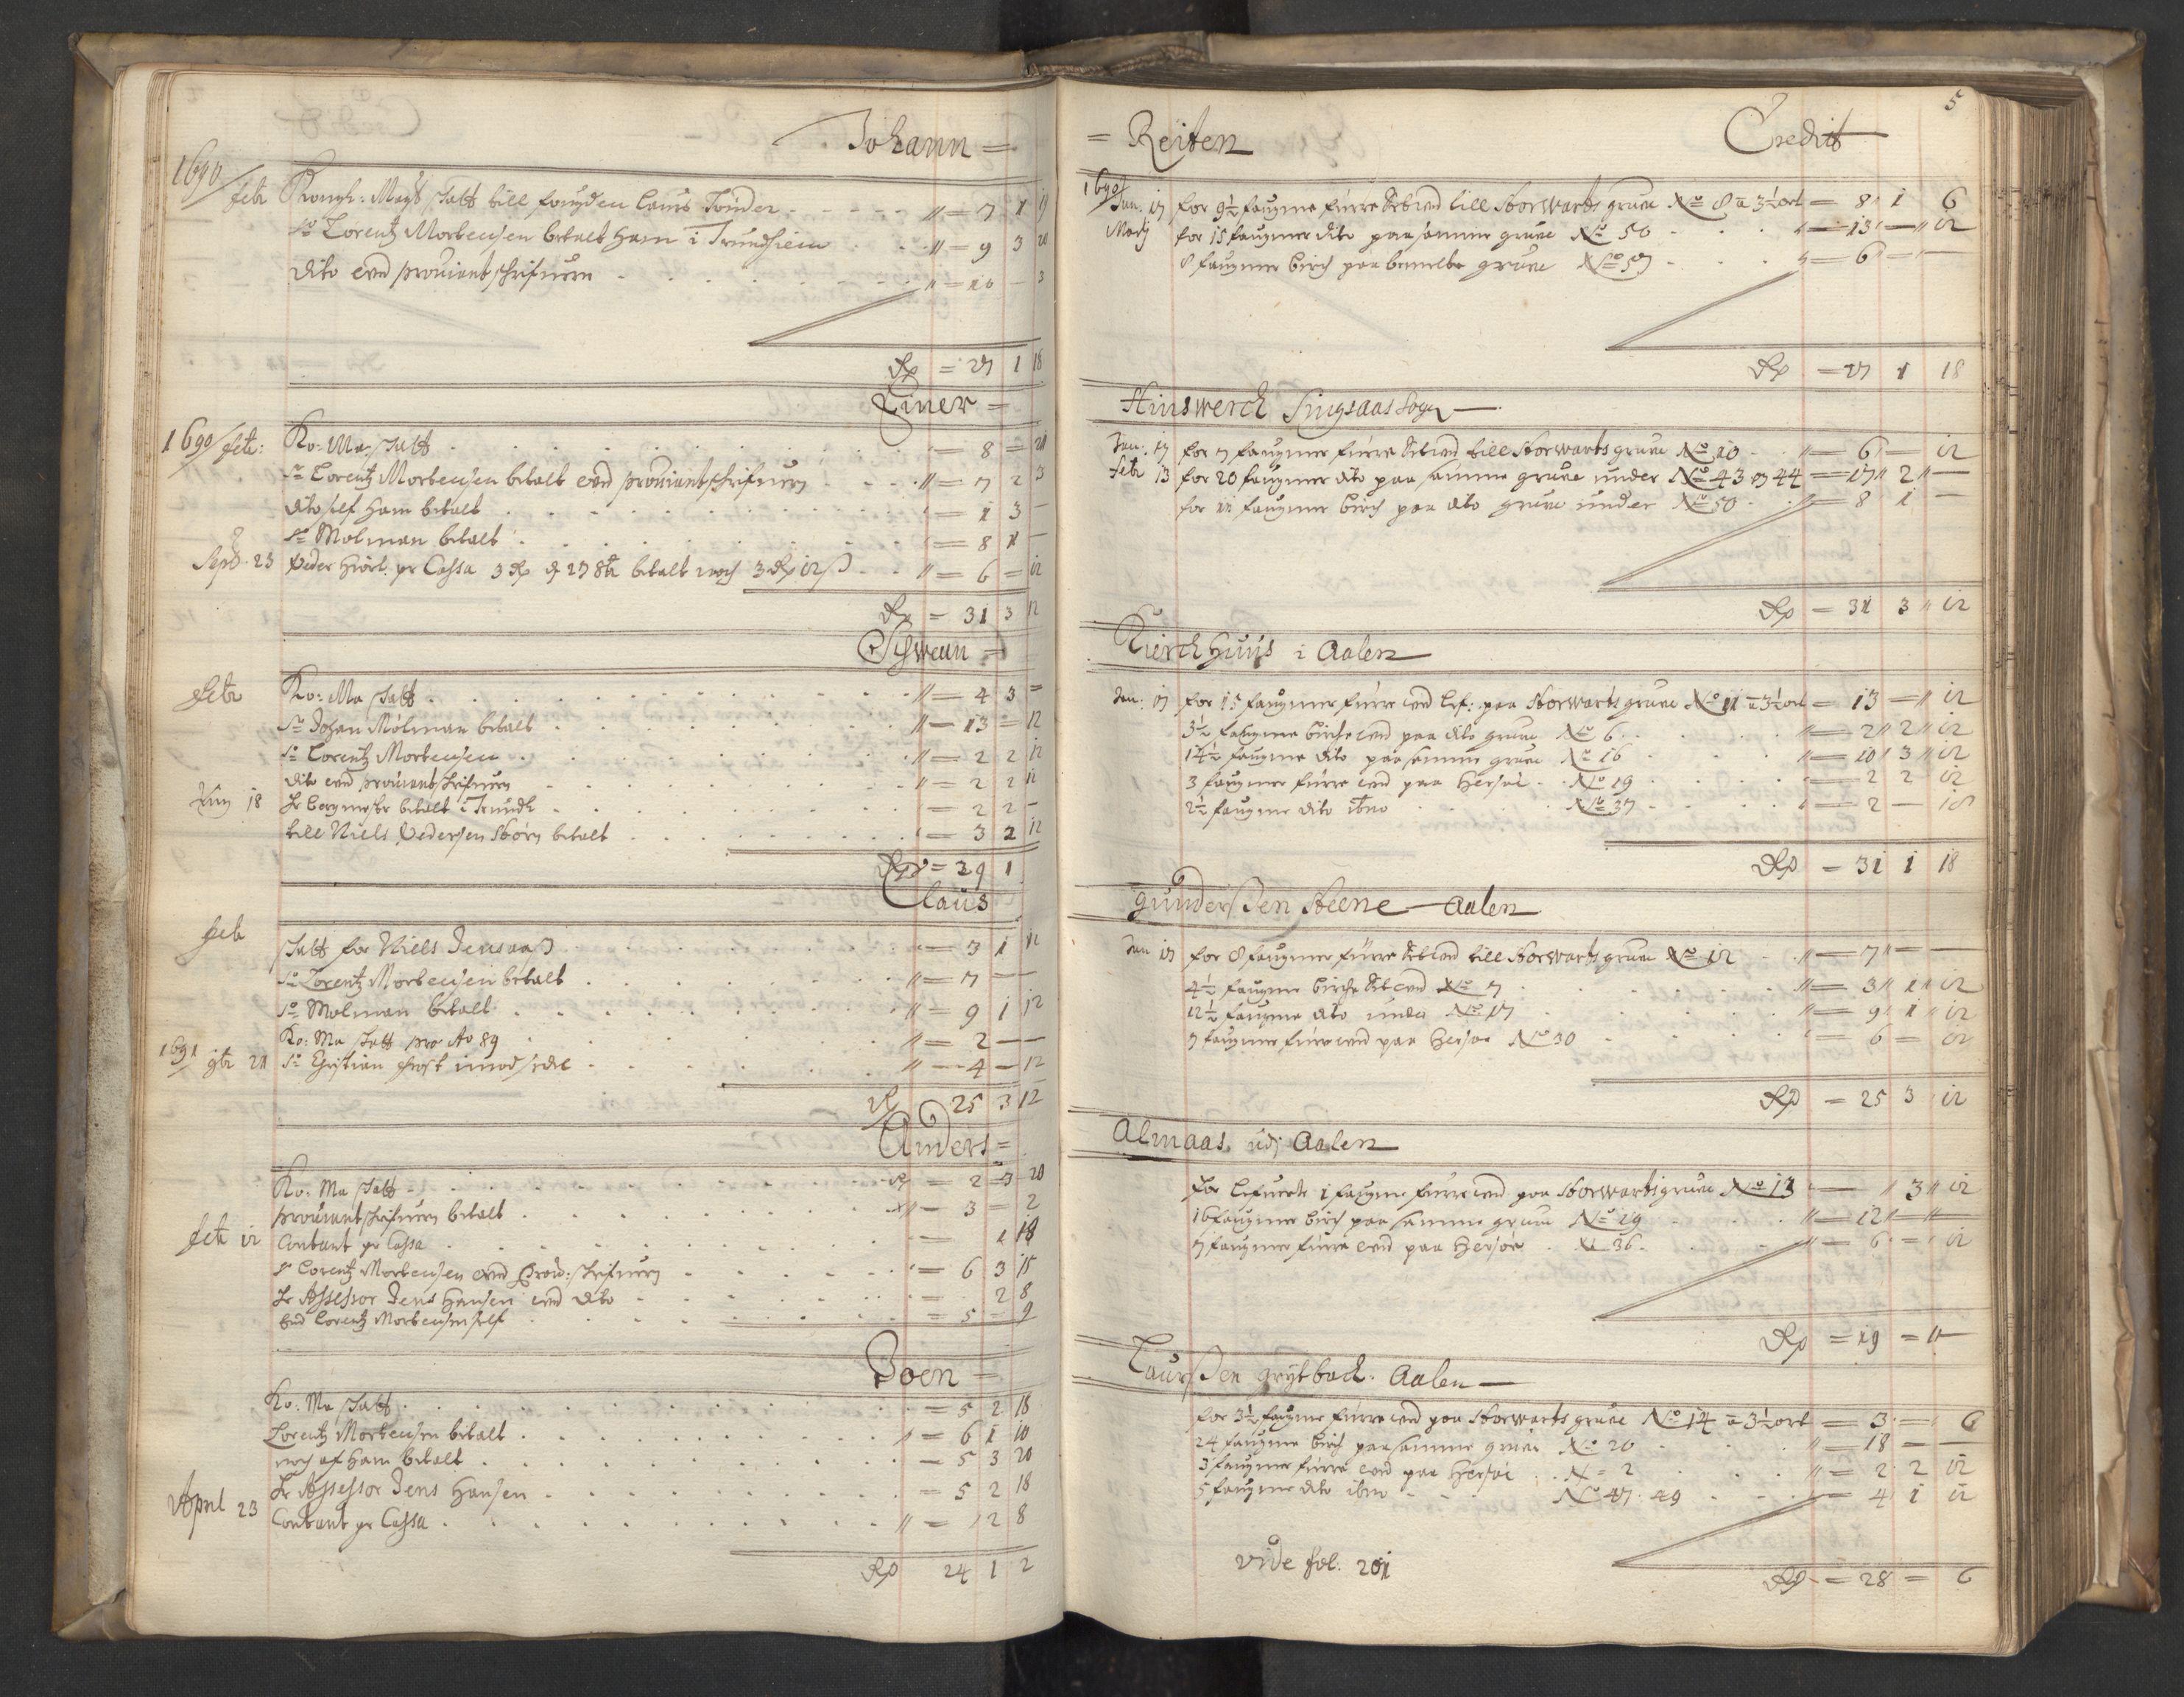 Johann =
1690/ febr Kongl: Mayts Schatt till fougden Lauris Tønder - - - - - " = 7 1 19
Sr Lorentz Mortensen betalt ham i Trundhiem . . " = 9 3 20
dito ved proviantschrifuern - . . . . . . . " = 10 - 3
Rp = 27 1 18
Einer =
1690/ febr: Ko: Ma: Schatt . . . . . . = 8 = 21
Sr Lorentz Mortensen betalt ved proviantschrifuern - . . . " = 7 2 3
dito self ham betalt . . . . . . = 1 3 -
Sr Molman betalt . . . . . . = 8 1 -
Septr 23 Peder Hiort pr Cassa 3 Rp d 27 8br betalt noch 3 Rp 12 s . . " = 6 = 12
Rp = 31 3 12
Schwenn =
febr Ko: Ma Schatt . . . . . . " = 4 3 =
Sr Johan Mølman betalt . . . . . . " - 13 = 12
Sr Lorentz Mortensen . . . . . . " = 2 2 12
dito ved proviantschrifuern . . . . . . " = 2 2 12
Juny 18 Hr bergmester betalt i Trundh . . . . . . = 2 2 -
till Niels Pedersen Størn betalt . . . . . . = 3 2 12
Rp = 29 1
Claus
feb Schatt for Niels Jensaas . . . . . . = 3 1 12
Sr Lorentz Mortensen betalt . . . . . . " = 7 -
Sr Molman betalt . . . . . . " = 9 1 12
Ko: Ma Schatt pro Ao 89 . . . . . . " = 2 - -
1691/ 9br 21 Sr Christian Frost imod sedel . . . . . . " - 4 - 12
Rp 25 3 12
Anders =
Ko: Ma Schatt . . . . . . Rp = 2 = 3 20
proviantschrifuern betalt . . . . . . " - 3 = 2
febr 12 Contant pr Cassa . . . . . . = 1 18
Sr Lorentz Mortensen ved Prov: schrifuern . . . . . . = 6 3 15
Hr Assessor Jens Hansen ved dito . . . . . . = 2 8
End Lorentz Mortensen self . . . . . . = 5 - 9
Joen =
Ko: Ma Schatt . . . . . . = 5 2 18
Lorentz Mortensen betalt . . . . . . " = 6 1 10
noch af ham betalt . . . . . . = 5 3 20
Hr Assessor Jens Hansen . . . . . . = 5 2 18
April 23 Contant pr Cassa . . . . . . " = 2 8
Rp 24 1 2
5
= Reiten Credit
1690/ Jan: 17 for 9½ faugme furre Setved till Storwarts grue No 8 a 3½ ort = 8 1 6
Martj for 15 faugmer dito paa samme grue No 50 . . " = 13 - " 12
8 faugmer birch paa bemelte grue No 57 - . . " = 6 " - " -
Rp = 27 1 18
Hinswerch Singsaas Sogn -
Jan: 17 for 7 faugmer furre Setved till Storwarts grue No 10 - " = 6 - 12
febr 13 for 20 faugmer dito paa samme grue under No 43 og 44 = 17 " 2 " -
for 11 faugmer birch paa dito grue under No 50 . = 8 1 -
Rp = 31 3 " 12
Kierchhuus i Aalen
Jan: 17 for 15 faugmer furre ved lef: paa Storwarts grue No 11 a 3½ ort = 13 = " 12
3½ faugme birche ved paa dito grue No 6 . . . " = 2 " 2 " 12
14½ faugme dito paa samme grue No 16 . . " = 10 " 3 " 12
3 faugmer furre ved paa Hersøe - . No 19 . . = 2 2 12
2½ faugme dito ibm No 37 . . " = 2 - 18
Rp = 31 1 18
Gundersen Steene - Aalen
Jan 17 for 8 faugmer furre Setved till Storwarts grue No 12 - " = 7 " - -
4½ faugme birche Setved No 7 . . . " = 3 " 1 " 12
12½ faugme dito under No 17 . . . " = 9 " 1 " 12
7 faugmer furre ved paa Hersøe No 30 . . . = 6 - 12
Rp = 25 3 12
Almaas udj Aalen
for lefuerte 1 faugme furre ved paa Storwarts grue No 13 - " 3 " 12
16 faugmer birch paa samme grue No 19 . . " = 12 " - " -
7 faugmer furre ved paa Hersøe . No 36 . . " = 6 - = 12
Rp = 19 = " -
Laursen Grytbach. Aalen -
for 3½ faugme furre ved paa Storwarts grue No 14 a 3½ ort = 3 - 6
24 faugme birch paa samme grue No 20 . " = 18 - -
3 faugmer furre ved paa Hersøe . No 2 . . " = 2 2 12
5 faugme dito ibm - - - No 47 . 49 - . = 4 1 12
vide fol. 201
Rp = 28 = 6